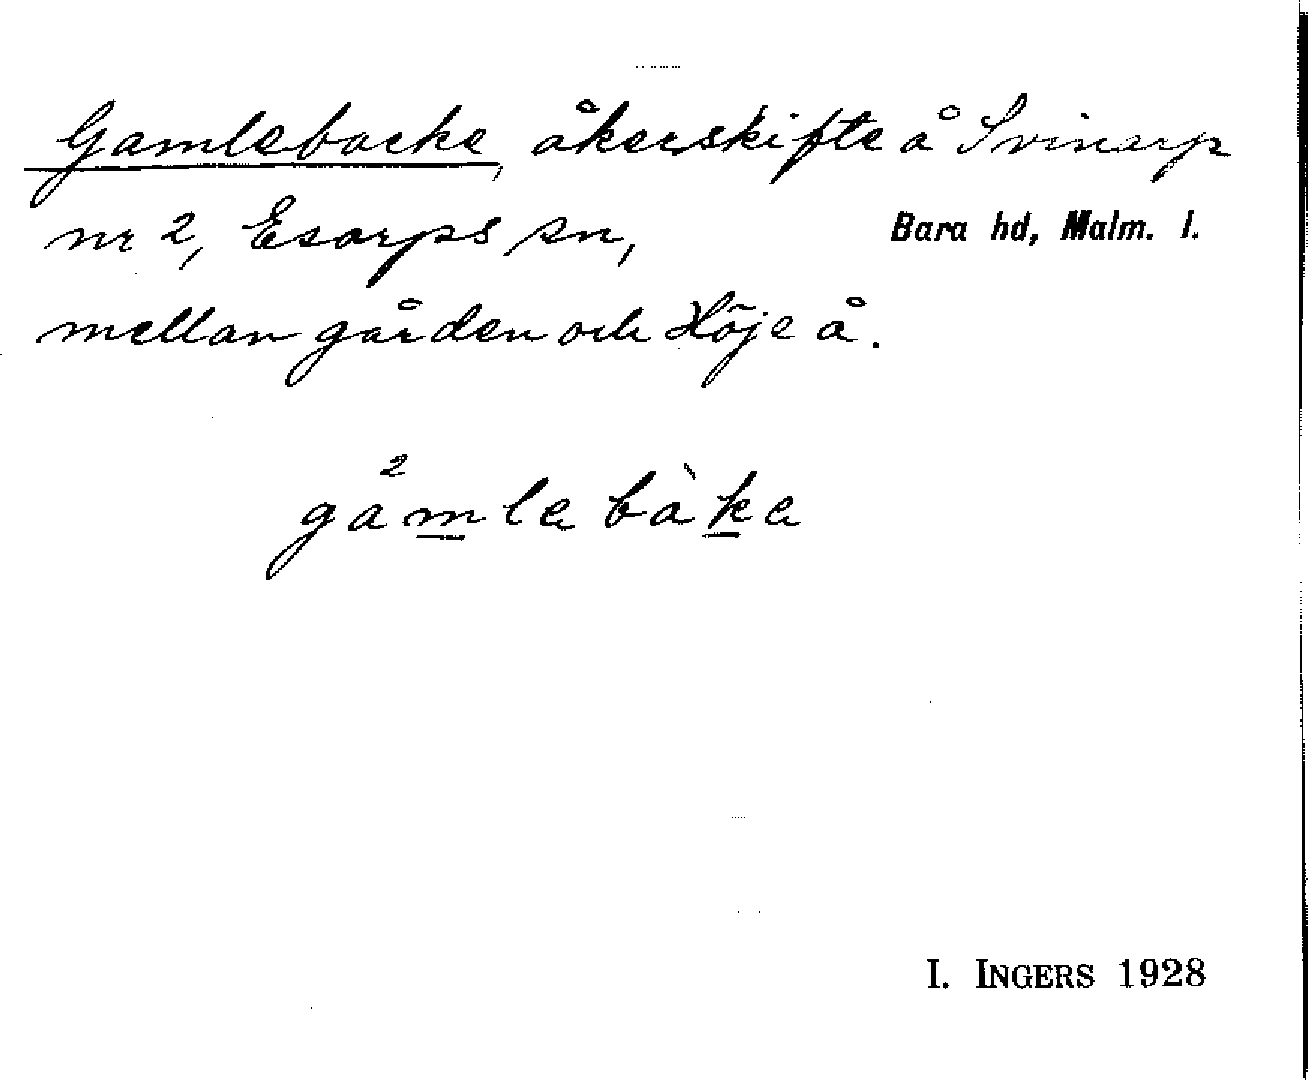 Gamlebacke, åkerskifte å Svinarp
nr 2, Esarps sn, Bara hd, Malm. l.
mellan gården och Höje å.
gà²mle bàke
I. INGERS 1928